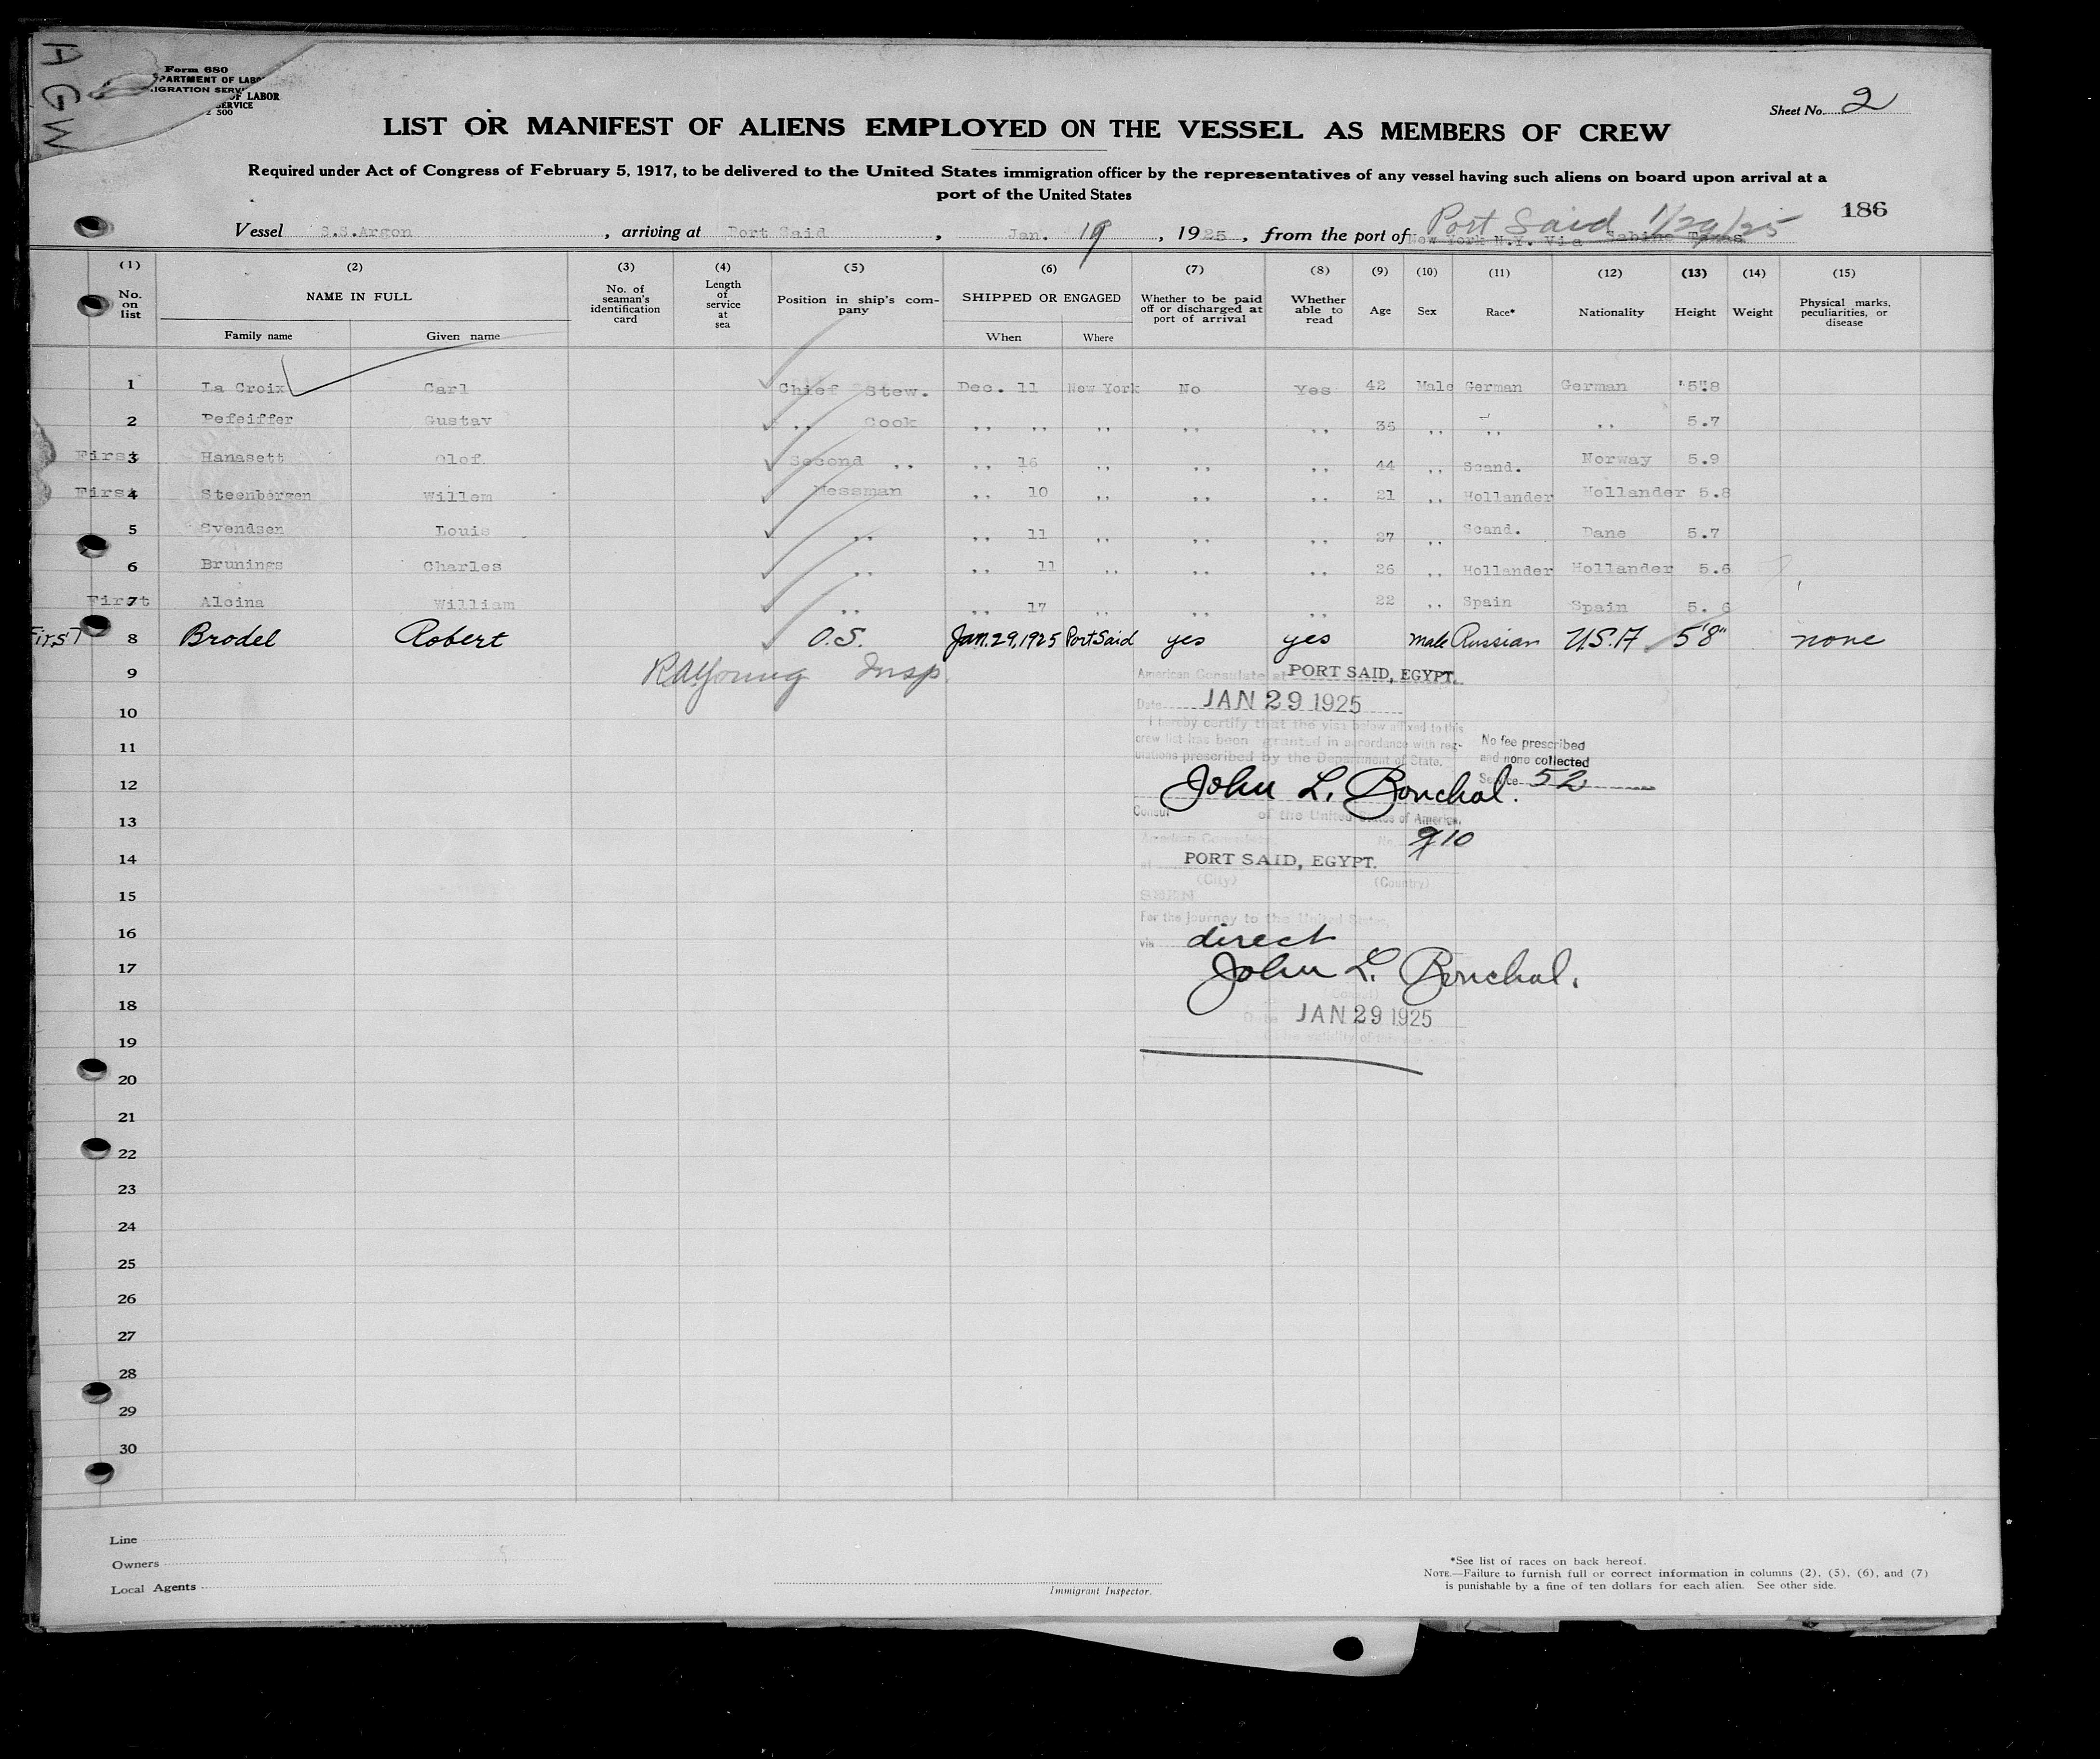 AGW
Form 680
PARTMENT OF LABO
IGRATION SERV
OF LABOR
SERVICE
500
Sheet No. 2
LIST OR MANIFEST OF ALIENS EMPLOYED ON THE VESSEL AS MEMBERS OF CREW
Required under Act of Congress of February 5, 1917, to be delivered to the United States immigration officer by the representatives of any vessel having such aliens on board upon arrival at a
port of the United States
186
Port Said 1/29/25
Vessel S.S.Argon, arriving at Port Said, Jan. 19, 1925, from the port of New York N.Y. Via Sabine Texas
(1) (2) (3) (4) (5) (6) (7) (8) (9) (10) (11) (12) (13) (14) (15)
No. on list NAME IN FULL No. of seaman's identification card Length of service at sea Position in ship's company SHIPPED OR ENGAGED Whether to be paid off or discharged at port of arrival Whether able to read Age Sex Race* Nationality Height Weight Physical marks, peculiarities, or disease
Family name Given name When Where
1 La Croix Carl Chief Stew. Dec. 11 New York No Yes 42 Male German German 5"8
2 Pefeiffer Gustav ,, Cook ,, ,, ,, ,, ,, 36 ,, ,, ,, 5.7
First 3 Hanasett Olof. Second ,, ,, 16 ,, ,, ,, 44 ,, Scand. Norway 5.9
First 4 Steenbergen Willem Messman ,, 10 ,, ,, ,, 21 ,, Hollander Hollander 5.8
5 Svendsen Louis ,, ,, 11 ,, ,, ,, 27 ,, Scand. Dane 5.7
6 Brunings Charles ,, ,, 11 ,, ,, ,, 26 ,, Hollander Hollander 5.6
First 7 Alcina William ,, ,, 17 ,, ,, ,, 22 ,, Spain Spain 5.6
First 8 Brodel Robert O.S. Jan. 29, 1925 Port Said yes yes male Russian U.S.A 5'8" none
9 RAYoung Insp. American Consulate at PORT SAID, EGYPT.
10 Date JAN 29 1925
I hereby certify that the visa below affixed to this
11 crew list has been granted in accordance with reg- No fee prescribed
ulations prescribed by the Department of State. and none collected
12 John L. Bouchal. Service 52
13 Consul of the United States of America.
American Consulate No. 910
14 at PORT SAID, EGYPT.
(City) (Country)
15 SEEN
For the journey to the United States,
16 via direct
17 John L. Bouchal.
(Consul)
18 Date JAN 29 1925
19 validity of this
20
21
22
23
24
25
26
27
28
29
30
Line
Owners
Local Agents
Immigrant Inspector.
*See list of races on back hereof.
NOTE.—Failure to furnish full or correct information in columns (2), (5), (6), and (7)
is punishable by a fine of ten dollars for each alien. See other side.